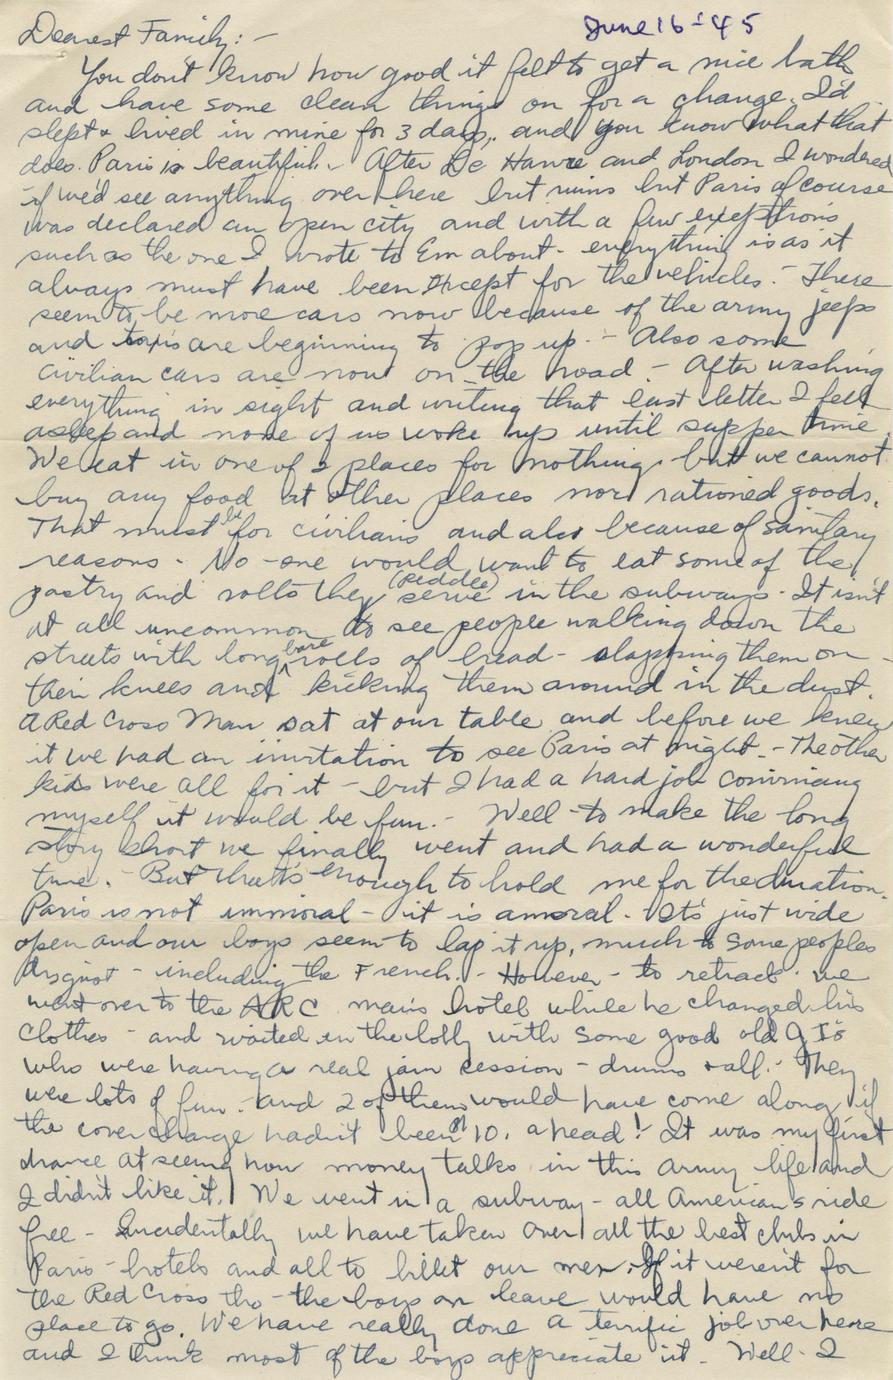 June 16-45
Dearest Family:-
You don't know how good it felt to get a nice bath
and have some clean things on for a change. I'd
slept & lived in mine for 3 days, and you know what that
does. Paris is beautiful. - After Le Havre and London I wondered
if we'd see anything over here but ruins but Paris of course
was declared an open city and with a few exeptions
such as the one I wrote to Em about - everything is as it
always must have been except for the vehicles. - There
seem to be more cars now because of the army jeeps
and taxis are beginning to pop up. - Also some
civilian cars are now on the road - After washing
everything in sight and writing that last letter I fell
asleep and none of us woke up until supper time.
We eat in one of 2 places for nothing, but we cannot
buy any food at other places nor rationed goods.
That must be for civilians and also because of sanitary
reasons - No-one would want to eat some of the
pastry and rolls they serve (peddle) in the subways - It isn't
at all uncommon to see people walking down the
streets with long bare rolls of bread - slapping them on -
their knees and kicking them around in the dust.
A Red Cross Man sat at our table and before we knew
it we had an invitation to see Paris at night. - The other
kids were all for it - but I had a hard job convincing
myself it would be fun. - Well - to make the long
story short we finally went and had a wonderful
time. - But that's enough to hold me for the duration.
Paris is not immoral - it is amoral. It's just wide
open and our boys seem to lap it up, much to some peoples
disgust - including the French. - However - to retract we
went over to the ARC man's hotel while he changed his
clothes - and waited in the lobby with some good old GIs
who were having a real jam session - drums & all. - They
were lots of fun - and 2 of them would have come along if
the cover charge hadn't been $10. a head! It was my first
chance at seeing how money talks in this army life and
I didn't like it. We went in a subway - all Americans ride
free - Incidentally we have taken over all the best clubs in
Paris - hotels and all to billet our men. If it weren't for
the Red Cross tho - the boys on leave would have no
place to go. We have really done a terrific job over here
and I think most of the boys appreciate it. Well - I